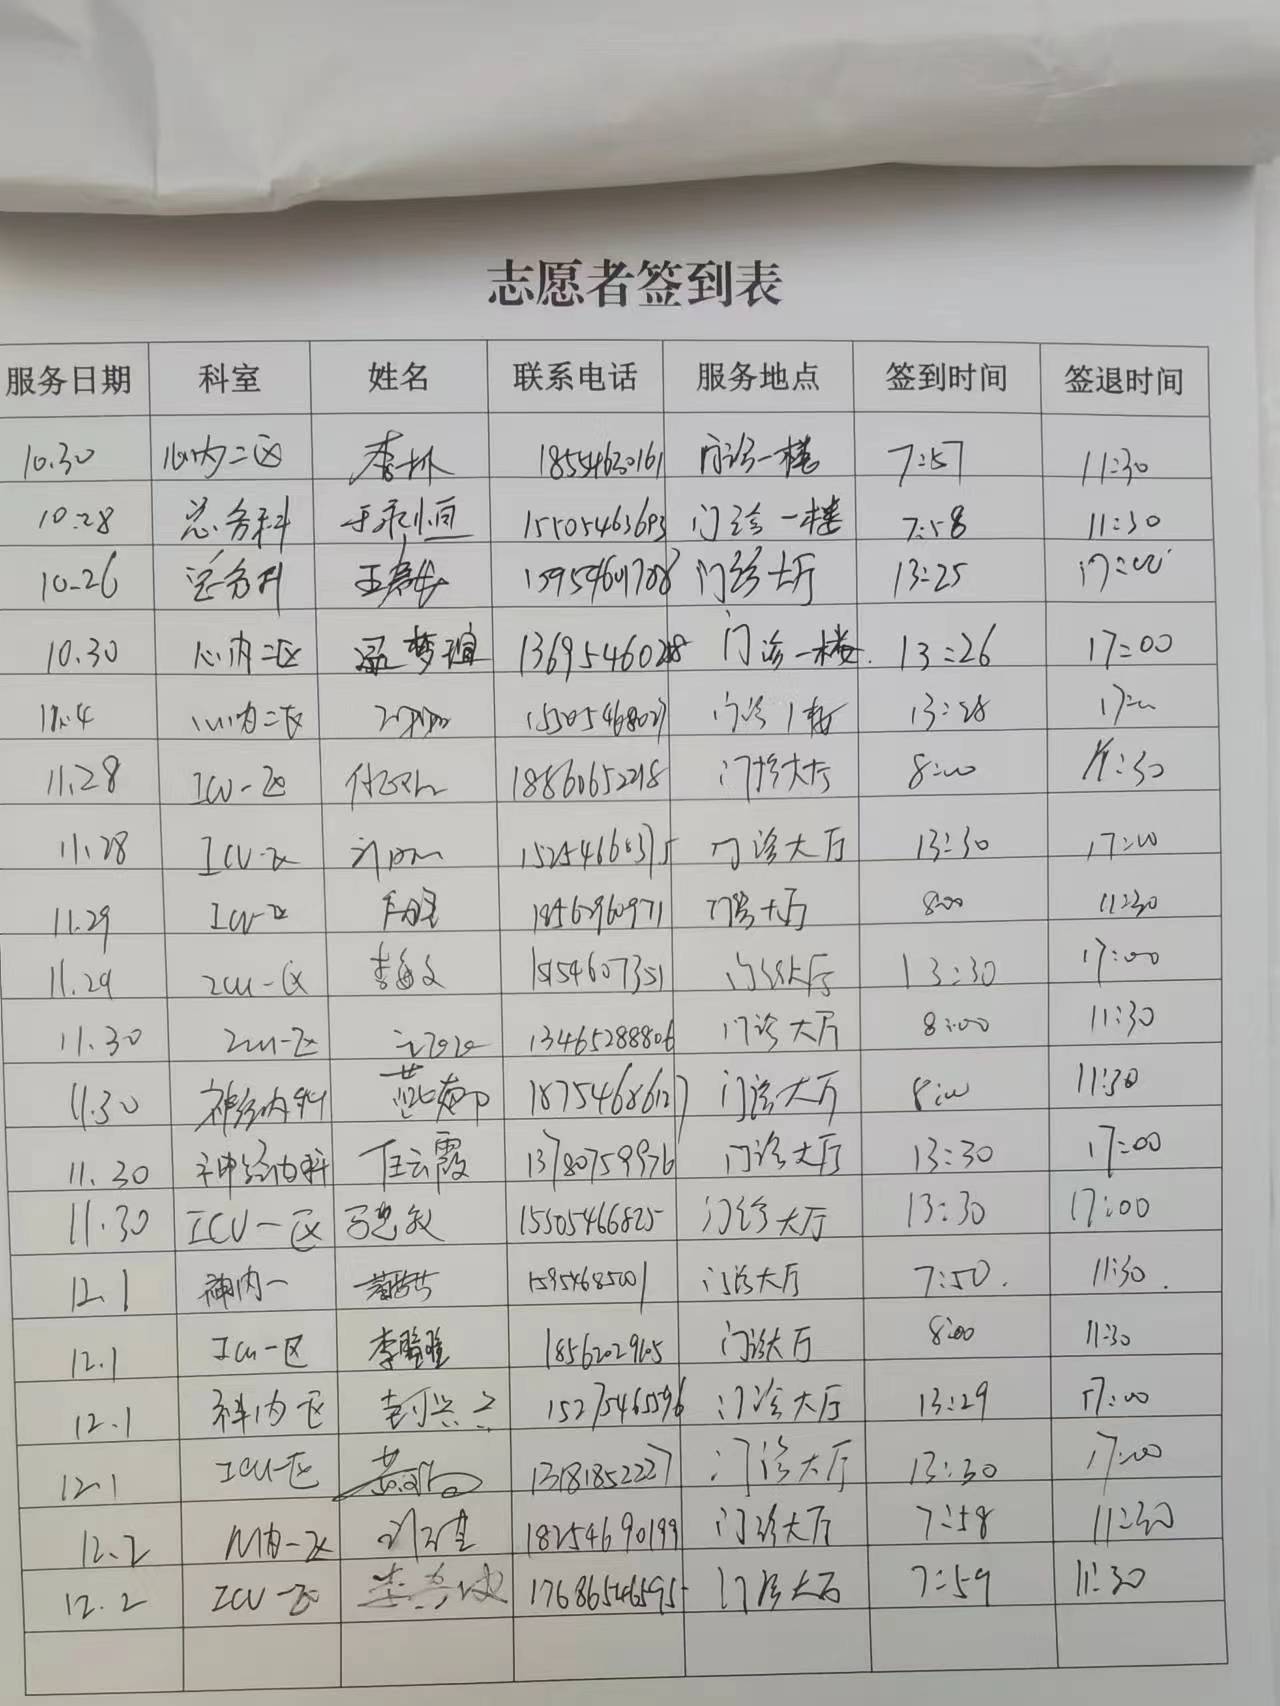 志愿者签到表
服务日期 科室 姓名 联系电话 服务地点 签到时间 签退时间
10.30 心内二区 李林 18554630161 门诊一楼 7:57 11:30
10.28 总务科 于永恒 15505463693 门诊一楼 7:58 11:30
10.26 总务科 门诊大厅 13:25 17:00
10.30 心内二区 梦瑄 门诊一楼. 13:26 17:00
11.4 心内二区 15505468027 门诊1楼 13:28
11.28 ICU一区 18860652218 门诊大厅 8:00 11:30
11.28 ICU一区 门诊大厅 13:30 17:00
11.29 ICU一区 18562960971 门诊大厅 8:00 11:30
11.29 ICU一区 李海文 门诊大厅 13:30 17:00
11.30 ICU一区 13465288806 门诊大厅 8:00 11:30
11.30 神经内科 18754686127 门诊大厅 8:00 11:30
11.30 神经内科 任云霞 13780759976 门诊大厅 13:30 17:00
11.30 ICU一区 15505466825 门诊大厅 13:30 17:00
12.1 神内一 15954685001 门诊大厅 7:50. 11:30.
12.1 ICU一区 门诊大厅 8:00 11:30
12.1 区 15275465596 门诊大厅 13:29 17:00
12.1 ICU一区 13181852227 门诊大厅 13:30 17:00
12.2 内一区 18254690199 门诊大厅 7:58 11:30
12.2 ICU一区 17686546595 门诊大厅 7:59 11:30